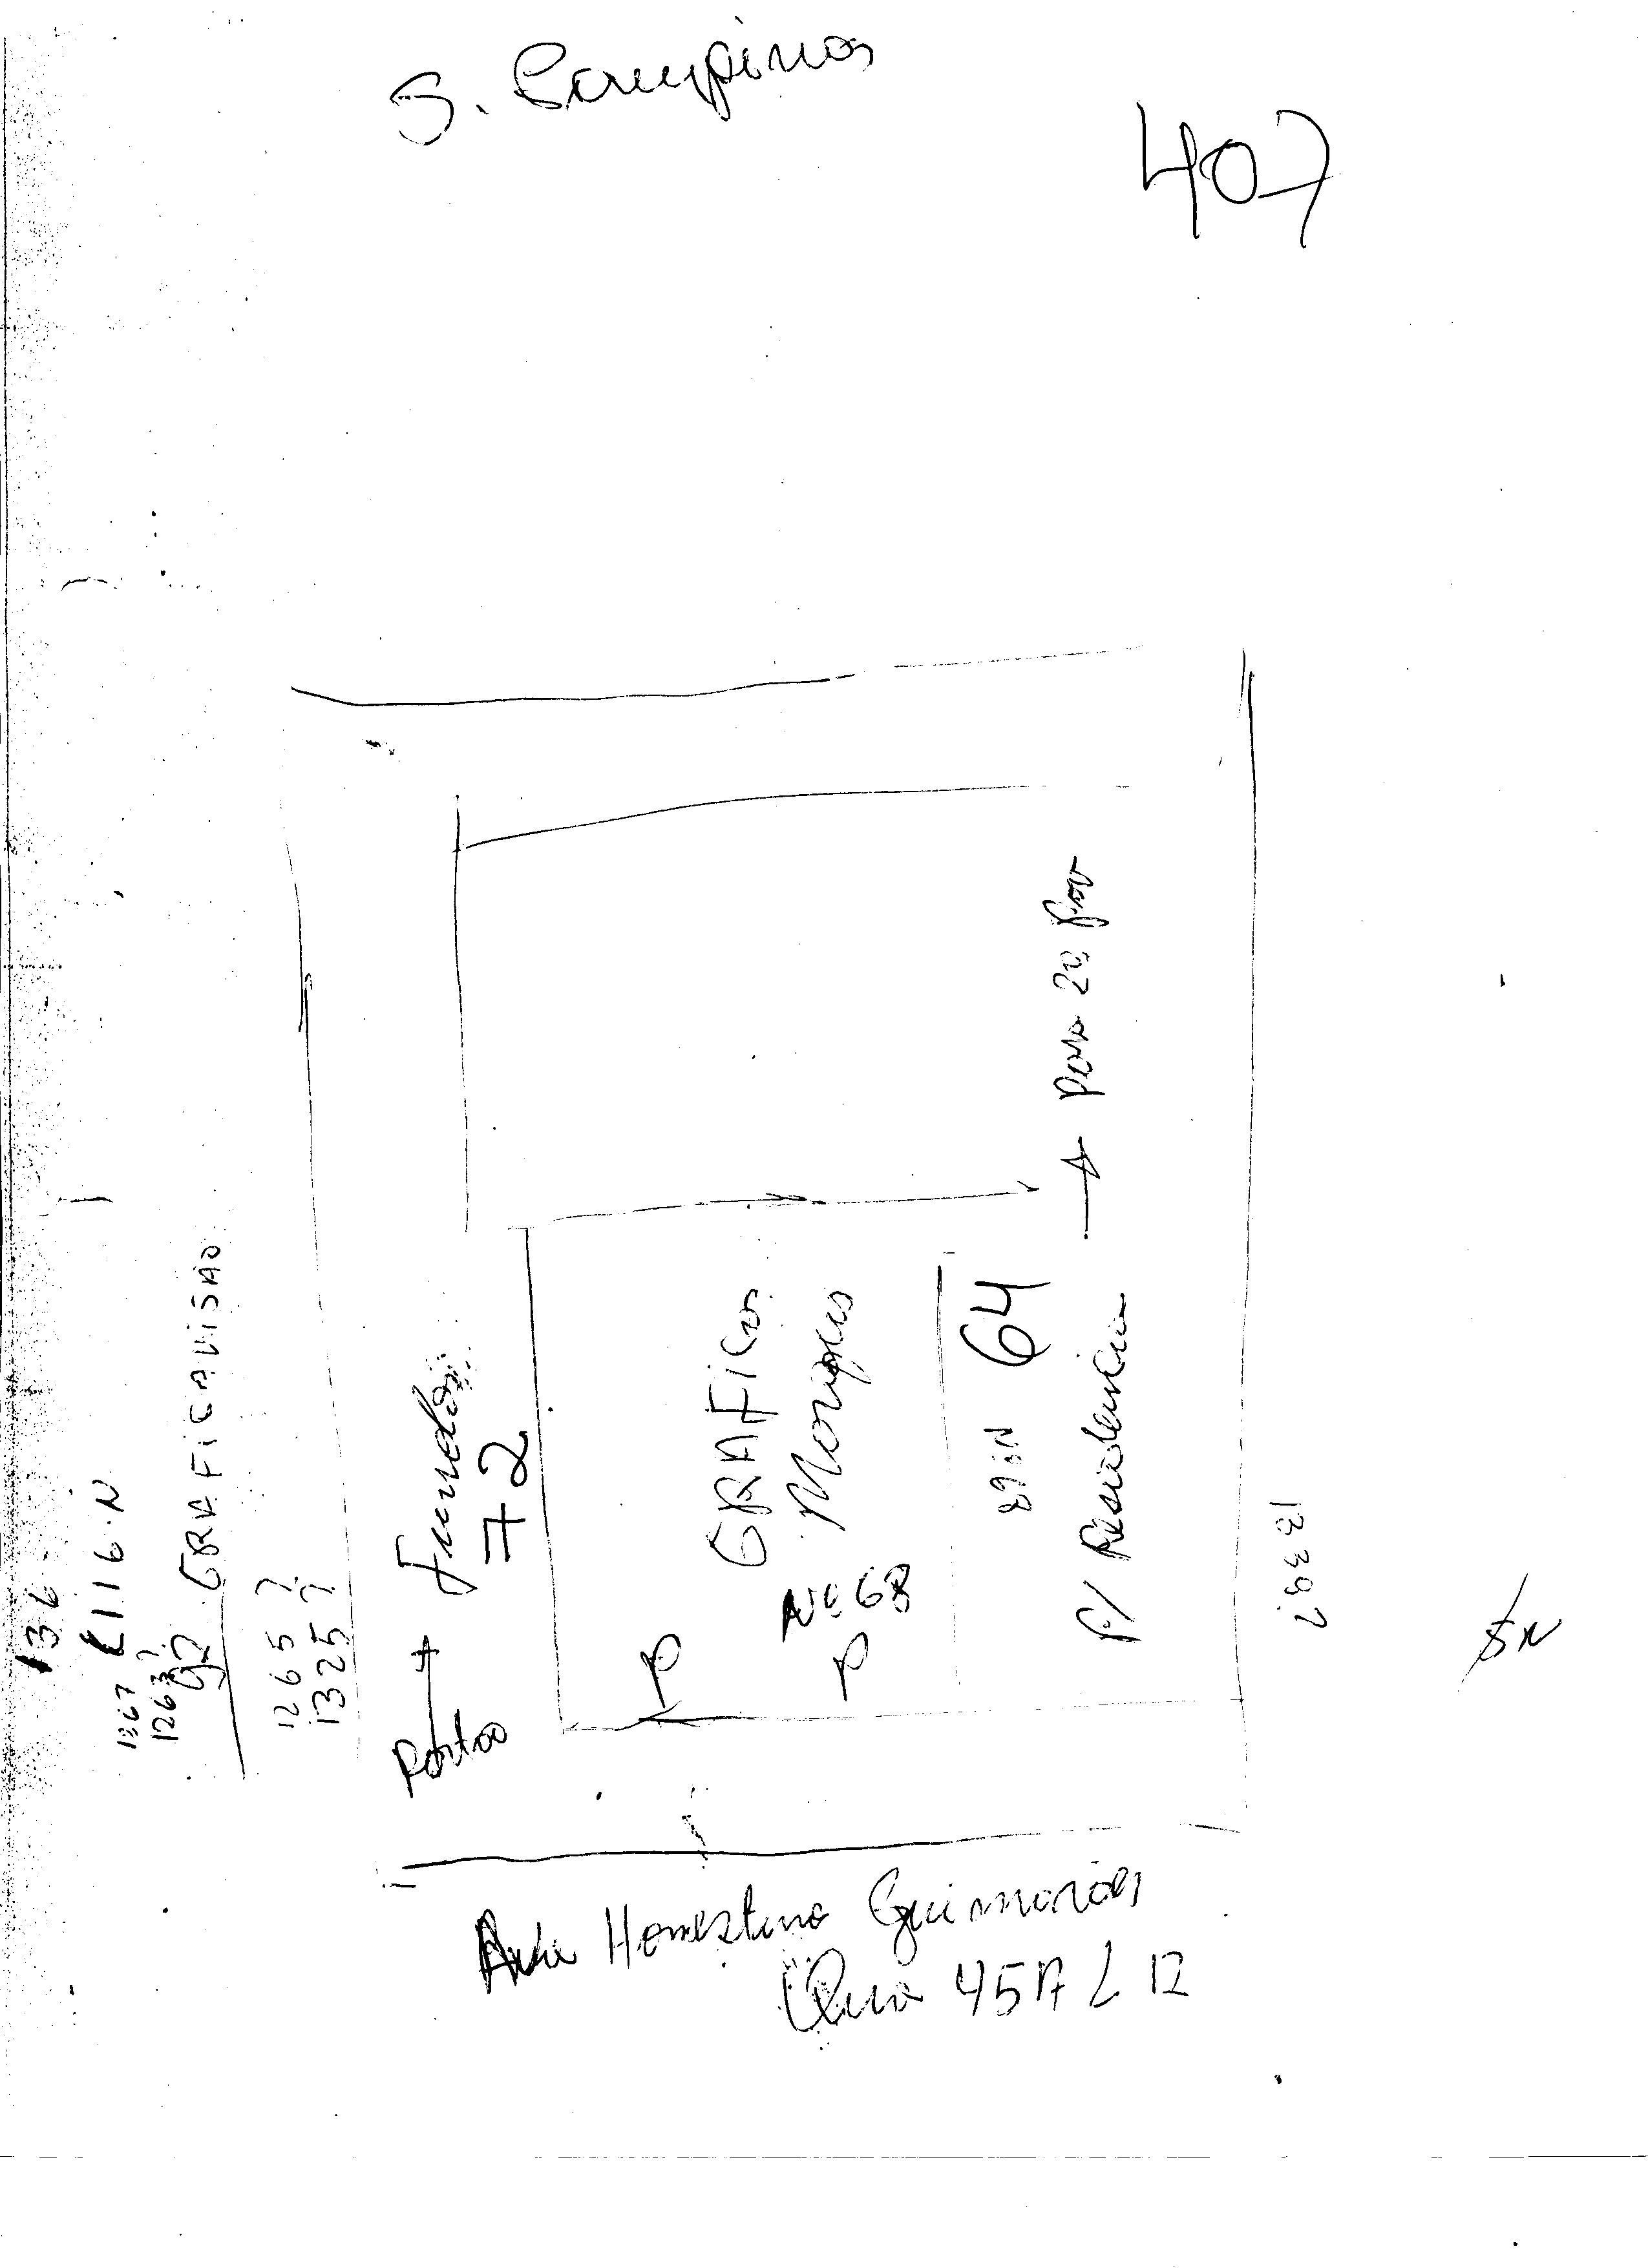 S. Campinas
407
136
L116.N
1267
1263?
92 GRAFICA VISÃO
1265?
1325?
Portão
Fundos
72
P
GRAFICA
Marques
Nº 68
P
64
P/ Residencia → para 20 Pav
1339
SN
Honestino Guimarães
Qua 45A L 12